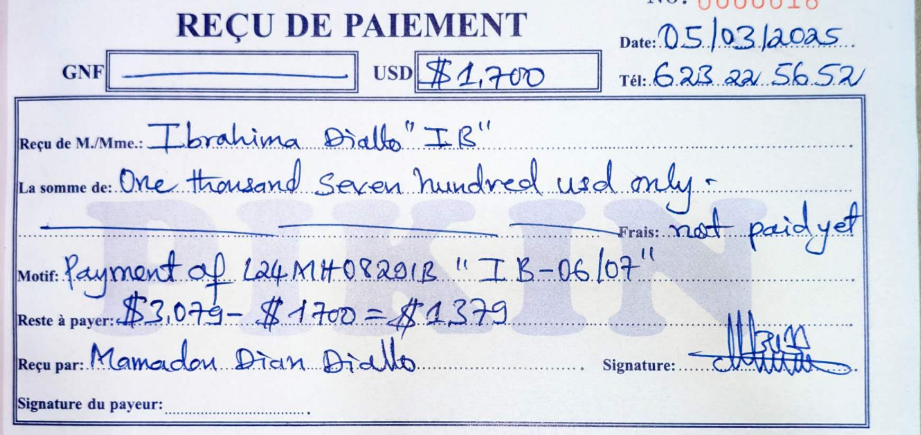 No: 0000018
REÇU DE PAIEMENT
Date: 05/03/2025
GNF USD $1,700
Tél: 623 22 56 52
Reçu de M./Mme.: Ibrahima Diallo "IB"
La somme de: One thousand Seven hundred usd only.
Frais: not paid yet
Motif: Payment of L24MH0829IB "IB-06/07"
Reste à payer: $3,079 - $1700 = $1379
Reçu par: Mamadou Dian Diallo Signature:
Signature du payeur:
PIKIN